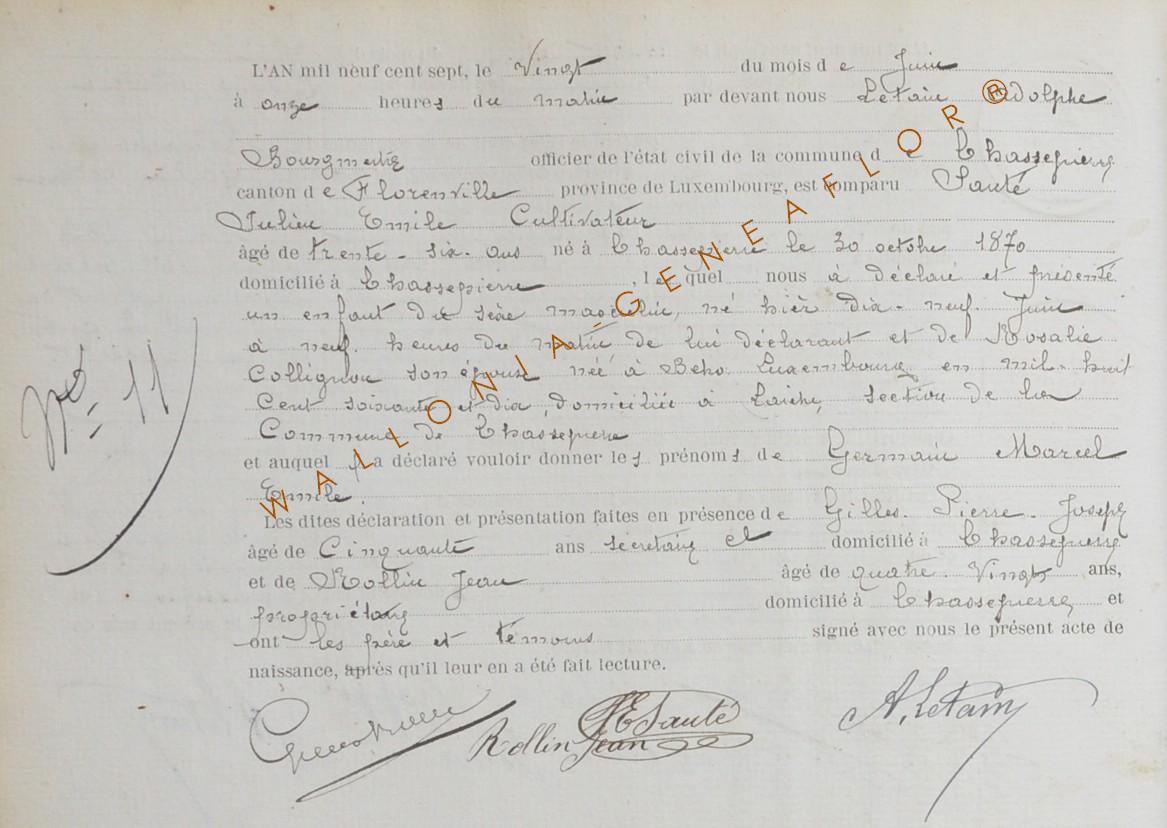 L'AN mil neuf cent sept, le Vingt du mois de Juin
à onze heures du matin par devant nous Letain Adolphe
Bourgmestre officier de l'état civil de la commune de Chassepierre
canton de Florenville province de Luxembourg, est comparu Santé
Julien Emile Cultivateur
âgé de trente-six-ans né à Chassepierre le 30 octobre 1870
domicilié à Chassepierre, lequel nous à déclaré et présenté
un enfant du sexe masculin, né hier dix-neuf Juin
à neuf heures du matin de lui déclarant et de Rosalie
Collignon son épouse née à Beho Luxembourg en mil-huit
Cent soixante et dix, domiciliée à Laiche, section de la
Commune de Chassepierre
et auquel il a déclaré vouloir donner les prénoms de Germain Marcel
Emile.
Les dites déclaration et présentation faites en présence de Gilles Pierre Joseph
âgé de Cinquante ans secrétaire et domicilié à Chassepierre
et de Rollin Jean âgé de quatre Vingts ans,
propriétaire domicilié à Chassepierre et
ont les père et témoins signé avec nous le présent acte de
naissance, après qu'il leur en a été fait lecture.
No 11
Rollin Jean
JE Santé
A. Letain
WALLONIA-GENEAFLOR®